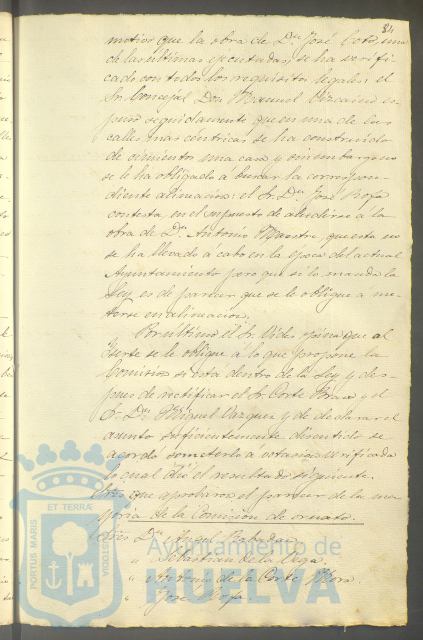 84
motivo que la obra de Dn José Coto, una
de las ultimas ejecutadas, se ha verifi-
cado con todos los requisitos legales: el
Sr. Concejal Don Manuel Vizcaino ex-
puso seguidamente que en una de las
calles mas céntricas se ha construido
de cimientos una casa y sin embargo no
se le ha obligado a buscar la correspon-
diente alineacion: el Sr. Dn José Rofa
contesta, en el supuesto de aludirse á la
obra de Dn Antonio Maestre, que esta no
se ha llevado á cabo en la época del actual
Ayuntamiento pero que si lo manda la
Ley, es de parecer que se le obligue a me-
terse en alineacion.
Por ultimo el Sr. Vides opina que al
se le obligue á lo que propone la
Comision si esta dentro de la Ley y des-
pues de rectificar el Sr. Corte y el
Sr. Dn Miguel Vazquez y de declarar el
asunto suficientemente discutido se
acordó someterlo a votacion verificada
la cual dió el resultado siguiente.
Sres que aprobaron el parecer de la ma-
yoria de la Comision de ornato.
Dn Angel
" Sebastian de la Vega
" Antonio de la Corte
" José Rofa
PORTUS MARIS ET TERRAE CUSTODIA
Ayuntamiento de
HUELVA